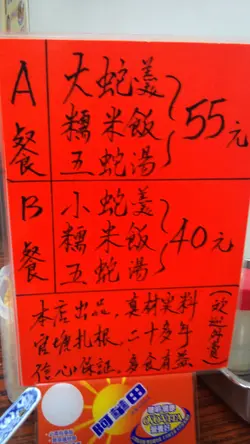 A餐
大蛇羹
糯米飯
五蛇湯
55元
B餐
小蛇羹
糯米飯
五蛇湯
40元
本店出品，真材實料
官塘扎根，二十多年
信心保証，多食有益
阿華田